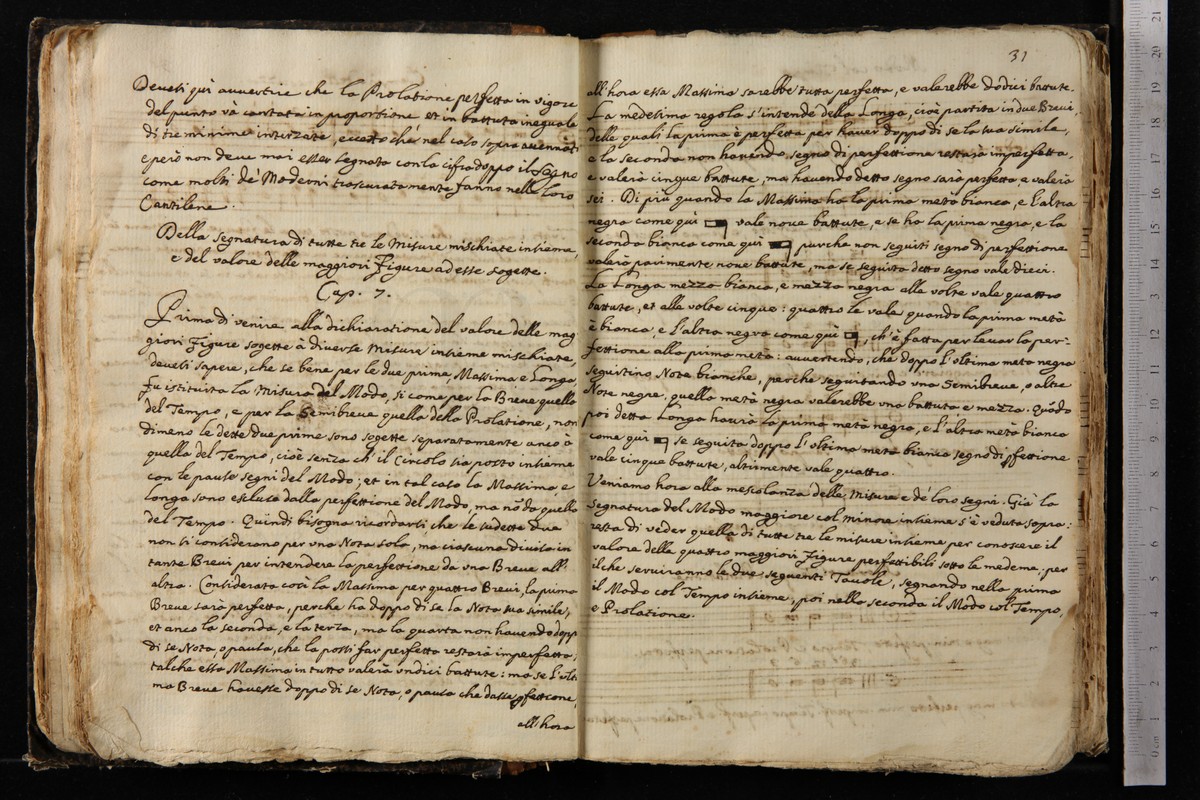 Devesi quì auuertire che la Prolatione perfetta in vigore
del punto và cantata in proportione et in battuta ineguale
di tre minime intrezate, eccetto che nel caso sopra accennato
e però non deue mai esser segnata con la cifra doppo il segno
come molti de' Moderni trascuratamente fanno nelle loro
Cantilene.
Della segnatura di tutte tre le Misure mischiate insieme,
e del valore delle maggiori Figure ad esse sogette.
Cap. 7.
Prima di venire alla dichiaratione del valore delle mag
giori Figure sogette à diuerse Misure insieme mischiate,
deuesi sapere, che se bene per le due prime, Massima e Longa,
fu istituita la Misura del Modo, si come per la Breue quella
del Tempo, e per la Semibreue quella della Prolatione, non
dimeno le dette due prime sono sogette separatamente anco à
quella del Tempo, cioè senza ch'il Circolo sia posto insieme
con le pause segni del Modo; et in tal caso la Massima, e
longa sono escluse dalla perfettione del Modo, ma nò da quella
del Tempo. Quindi bisogna ricordarsi, che le sudette due
non si considerano per vna Nota sola, ma ciascuna diuisa in
tante Breui per intendere la perfettione da vna Breue all'
altra. Considerata così la Massima per quattro Breui, la prima
Breue sarà perfetta, perche ha doppo di se la Nota sua simile,
et anco la seconda, e la terza, ma la quarta non hauendo doppo
di se Nota, o pausa, che la possi far perfetta restarà imperfetta,
talche essa Massima in tutto valerà vndici battute: ma se l'ulti
ma Breue hauesse doppo di se Nota, o pausa che dasse pfettione,
all'hora
31
all'hora essa Massima sarebbe tutta perfetta, e valerebbe dodici battute.
La medesima regola s'intende della Longa, cioè partita in due Breui,
delle quali la prima è perfetta per hauer doppo di se la sua simile,
e la seconda non hauendo segno di perfettione restarà imperfetta,
e valerà cinque battute, ma hauendo detto segno sarà perfetta, e valerà
sei. Di più quando la Massima ha la prima metà bianca, e l'altra
negra come quì vale noue battute, e se ha la prima negra, e la
seconda bianca come quì purche non seguiti segno di perfettione
valerà parimente noue battute, ma se seguita detto segno vale dieci.
La Longa mezza bianca, e mezza negra alle volte vale quattro
battute, et alle volte cinque: quattro le vale quando la prima metà
è bianca, e l'altra negra come quì, ch'è fatta per leuar la per-
fettione alla prima metà: auuertendo, che doppo l'vltima metà negra
seguitino Note bianche, perche seguitando vna Semibreue, o altre
Note negre, quella metà negra valerebbe vna battuta e mezza. Quãdo
poi detta Longa hauerà la prima metà negra, e l'altra metà bianca
come quì se seguita doppo l'vltima metà bianca segno di pfettione
vale cinque battute, altrimente vale quattro.
Veniamo hora alla mescolanza delle Misure e de' loro segni. Già la
segnatura del Modo maggiore col minore insieme s'è veduta sopra:
resta di veder quella di tutte tre le misure insieme per conoscere il
valore delle quattro maggiori Figure perfettibili sotto la medema. per
il che seruiranno le due seguenti Tauole, segnando nella prima
il Modo col Tempo insieme, poi nella seconda il Modo col Tempo,
e Prolatione.